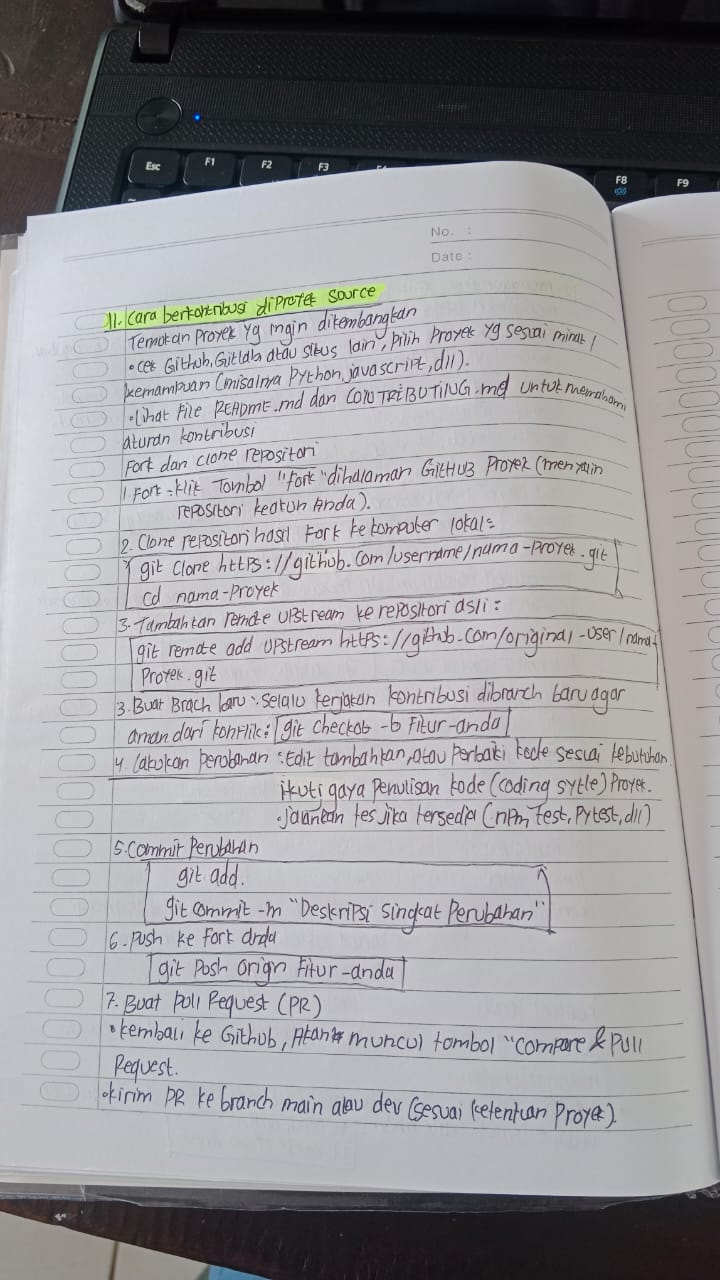 Esc F1 F2 F3 F8 F9
No. :
Date :
11. Cara berkontribusi diProyek Source
Temukan Proyek Yg ingin dikembangkan
• cek Github, Gitlab atau situs lain, Pilih Proyek yg sesuai minat /
kemampuan (misalnya Python, javascript, dll).
• lihat File README.md dan CONTRIBUTING.md untuk memahami
aturan kontribusi
Fork dan clone repositori
1. Fork : klik Tombol "Fork" dihalaman GitHUB Proyek (menyalin
repositori keakun Anda).
2. Clone repositori hasil Fork ke komputer lokal :
git Clone https://github.com/username/nama-Proyek.git
cd nama-Proyek
3. Tambahkan remote UPstream ke repositori asli :
git remote add UPstream https://github.com/original-user/nama-
Proyek.git
3. Buat Brach baru : Selalu kerjakan kontribusi dibranch baru agar
aman dari konflik : git checkot -b Fitur-anda
4. Lakukan perubahan : Edit tambahkan, atau Perbaiki kode sesuai kebutuhan.
ikuti gaya Penulisan kode (coding sytle) Proyek.
• jalankan tes jika tersedia (npm test, Pytest, dll)
5. Commit Perubahan
git add.
git commit -m "Deskripsi Singkat Perubahan"
6. Push ke Fork anda
git Push orign Fitur-anda
7. Buat Pull Request (PR)
• kembali ke Github, Akan muncul tombol "Compare & Pull
Request.
• kirim PR ke branch main atau dev (sesuai ketentuan Proyek).